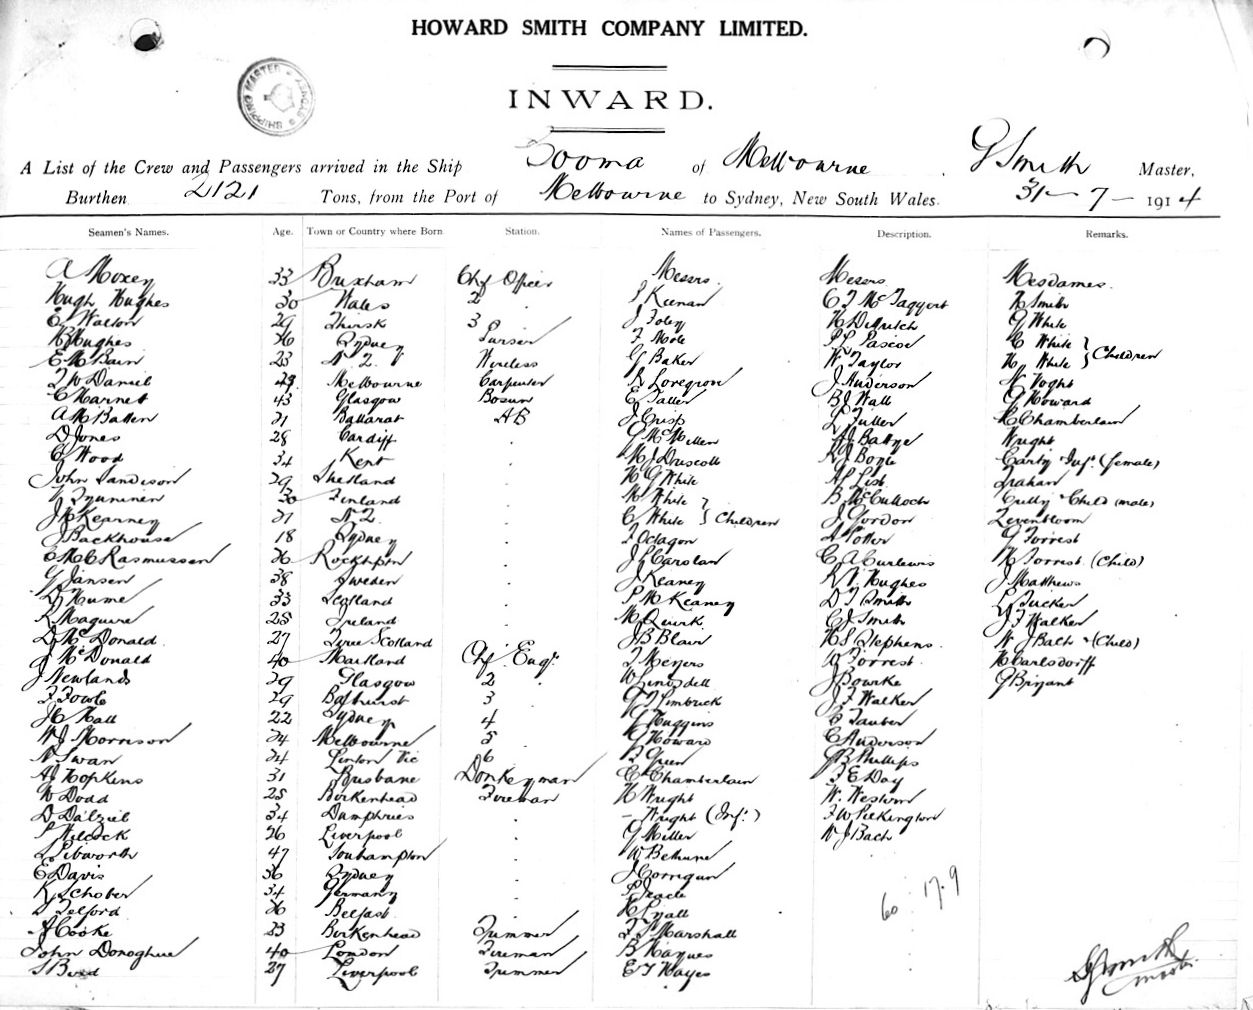 HOWARD SMITH COMPANY LIMITED.
INWARD.
SHIPPING MASTER
A List of the Crew and Passengers arrived in the Ship Booma of Melbourne G Smith Master,
Burthen 2121 Tons, from the Port of Melbourne to Sydney, New South Wales. 31-7-1914
Seamen's Names. Age. Town or Country where Born Station. Names of Passengers. Description. Remarks.
A Moxey 33 Brixham Chf Officer Messrs. Messrs Mesdames.
Hugh Hughes 30 Wales 2 " Keenan C J McTaggert H Smith
E Walton 29 Thirsk 3 J Foley G White
Hughes 36 Sydney Purser F Mole Pascoe C White } Children
E McBain 23 N Z. Wireless G Baker W Taylor H White
W Daniel 49 Melbourne Carpenter Loregron J Anderson Voght
C Harnet 43 Glasgow Bosun E Taller B J Wall G Howard
A McBatten 21 Ballarat AB J Crisp Fuller Chamberlain
D Jones 28 Cardiff G McMillen Battye Wright
C Wood 34 Kent M J Driscoll Boyle Carty Inft (female)
John Sandison 29 Shetland H G White List Graham
30 Finland H White } Children B McCulloch Cully Child (male)
Kearney 21 N Z C White J Gordon Levenbloom
J Backhouse 18 Sydney Octagon Potter G Forrest
E M C Rasmussen 26 Rockhptn J L Carolan C A Curlewis Forrest (Child)
G Jansen 38 Sweden J Keaney Hughes J Matthews
D Hume 33 Scotland P McKeaney D J Smith Tucker
R Maguire 25 Ireland M Quirk C J Smith J F Walker
D McDonald 27 Tyree Scotland J B Blair H S Stephens. W J Bach (Child)
J McDonald 40 Maitland Chf Engr. Meyers W Forrest H Carlsdorff
J Newlands 29 Glasgow 2 " W Linsdell J Bourke G Bryant
F Fowle 29 Bathurst 3 G T Limbrick J F Walker
J C Hall 22 Sydney 4 G Huggins C Tauber
W J Morrison 24 Melbourne 5 G Howard C Anderson
N Swan 24 Linton Vic 6 Green G B Phillips
A J Hopkins 31 Brisbane Donkeyman C Chamberlain F E Day
W Dodd 25 Birkenhead Fireman H Wright W. Weston
D Dalziel 34 Dumphries - Wright (Inft.) F W Pilkington
Wilcock 26 Liverpool G Miller W J Bach
47 Southampton W Bethune
E Davis 36 Sydney J Corrigan
K Schober 34 Germany
Telford 26 Belfast Lyall
A J Cooke 23 Birkenhead Trimmer Marshall
John Donoghue 40 London Fireman B Haynes
Bird 27 Liverpool Trimmer E T Hayes
60: 17. 9
G Smith
Master.